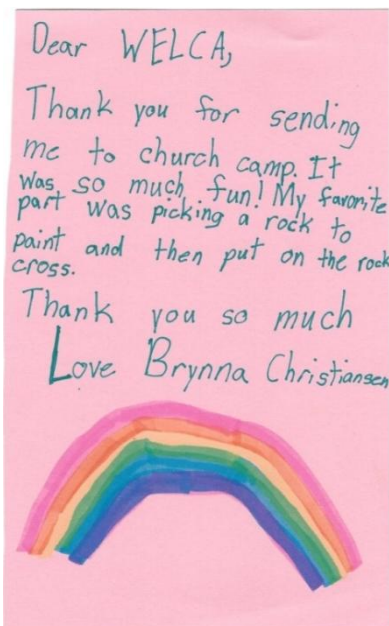 Dear WELCA,
Thank you for sending
me to church camp. It
was so much fun! My favorite
part was picking a rock to
paint and then put on the rock
cross.
Thank you so much
Love Brynna Christiansen